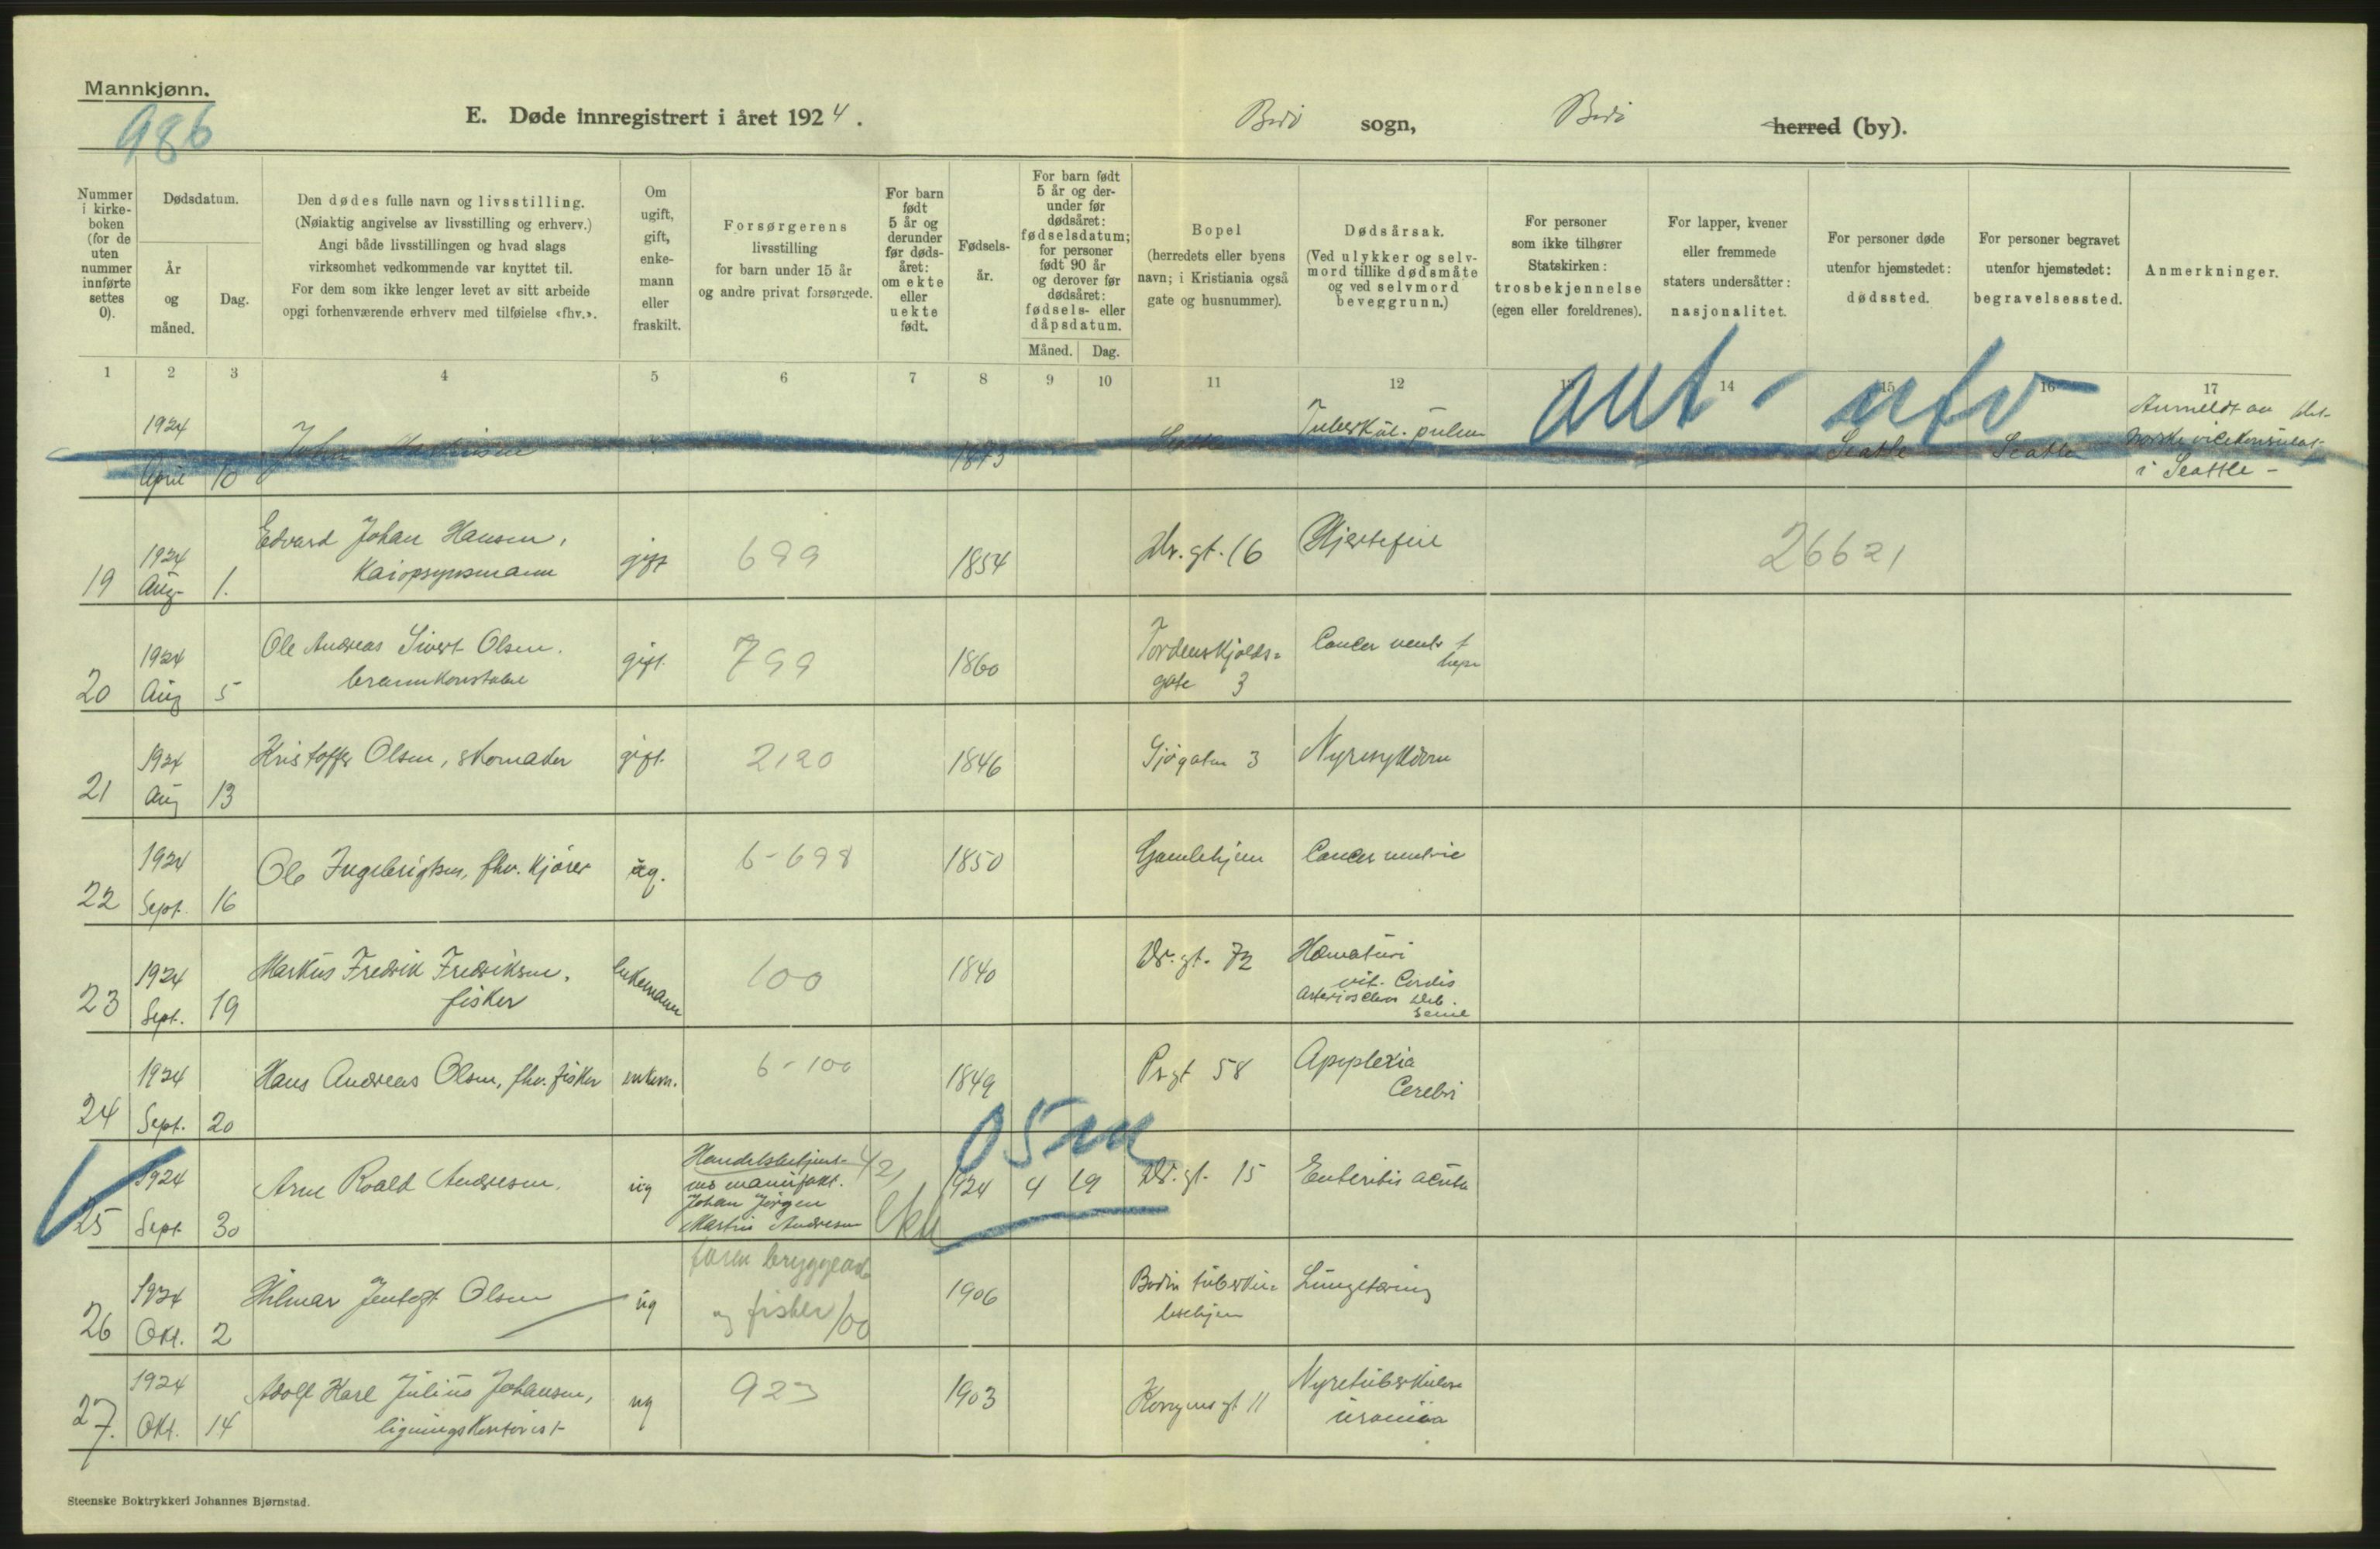 Mannkjønn.
986
E. Døde innregistrert i året 1924.
Bodø sogn, Bodø herred (by).
Nummer i kirke-boken (for de uten nummer innførte settes 0).
Dødsdatum.
År og måned.
Dag.
Den dødes fulle navn og livsstilling.
(Nøiaktig angivelse av livsstilling og erhverv.)
Angi både livsstillingen og hvad slags
virksomhet vedkommende var knyttet til.
For dem som ikke lenger levet av sitt arbeide
opgi forhenværende erhverv med tilføielse «fhv.».
Om ugift, gift, enke-mann eller fraskilt.
Forsørgerens
livsstilling
for barn under 15 år
og andre privat forsørgede.
For barn født 5 år og derunder før døds-året: om ekte eller uekte født.
Fødsels-år.
For barn født 5 år og der-under før dødsåret: fødselsdatum; for personer født 90 år og derover før dødsåret: fødsels- eller dåpsdatum.
Måned. Dag.
Bopel
(herredets eller byens
navn; i Kristiania også
gate og husnummer).
Dødsårsak.
(Ved ulykker og selv-
mord tillike dødsmåte
og ved selvmord
beveggrunn.)
For personer
som ikke tilhører
Statskirken:
trosbekjennelse
(egen eller foreldrenes).
For lapper, kvener
eller fremmede
staters undersåtter:
nasjonalitet.
For personer døde
utenfor hjemstedet:
dødssted.
For personer begravet
utenfor hjemstedet:
begravelsessted.
Anmerkninger.
1 2 3 4 5 6 7 8 9 10 11 12 13 14 15 16 17
1924 April 10 Johan 1873 Seattle Tuberkul. pulm Seattle Seattle Anmeldt av det
norske vicekonsulat
i Seattle -
ant - utv
19 1924 Aug. 1. Edvard Johan Hansen,
Kaiopsynsmann gift 699 1854 Dr. gt. 16 Hjertefeil 26621
20 1924 Aug 5 Ole Andreas Sivert Olsen.
brannkonstabel gift. 799 1860 Tordenskjolds=
gate 3 Cancer ventr +
hepa
21 1924 Aug 13 Kristoffer Olsen, skomaker gift. 2120 1846 Sjøgaten 3 Nyresykdom
22 1924 Sept. 16 Ole Ingebrigtsen, fhv. kjører ug. 6-698 1850 Gamlehjem Cancer ventric
23 1924 Sept. 19 Markus Fredrik Fredriksen,
fisker enkemann 100 1840 Dr. gt. 72 Hæmaturi
vit. Cordis
Arterioscleros deb.
senil
24 1924 Sept. 20 Hans Andreas Olsen, fhv. fisker enkem. 6-100 1849 Pr gt 58 Apoplexia
Cerebri
25 1924 Sept 30 Arne Roald Andresen. ug Handelsbetjent 421
ved manufakt.
Johan Jørgen
Martin Andresen ekte 1924 4 19 Dr. gt. 15 Enteritis acuta
05 m
26 1924 Okt. 2 Hilmar Jentoft Olsen ug faren bryggearb
og fisker 100 1906 Bodin tuberku=
losehjem Lungetæring
27. 1924 Okt. 14 Adolf Karl Julius Johansen,
ligningskontorist ug 923 1903 Kongens gt 11 Nyretuberkulose
uræmia
Steenske Boktrykkeri Johannes Bjørnstad.